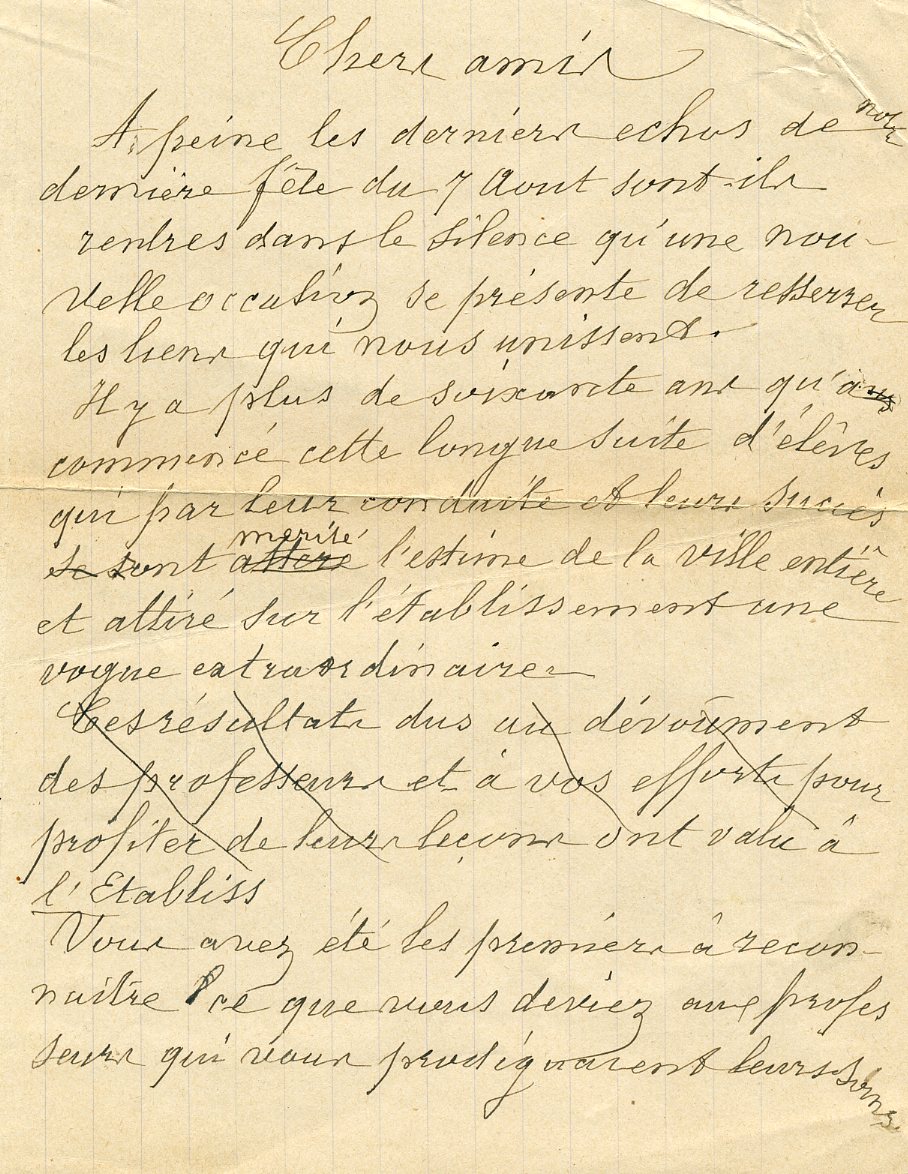 Chers amis
A peine les derniers echos de notre
dernière fête du 7 Aout sont-ils
rentres dans le silence qu'une nou-
velle occasion se présente de resserrer
les liens qui nous unissent.
Il y a plus de soixante ans qu'a
commencé cette longue suite d'élèves
qui par leur conduite et leurs succès
se sont attiré mérité l'estime de la ville entière
et attiré sur l'établissement une
vogue extraordinaire
Ces résultats dus au dévoûment
des professeurs et à vos efforts pour
profiter de leurs leçons ont valu à
l'Etabliss
Vous avez été les premiers à recon-
naître ce que vous deviez aux profes
seurs qui vous prodiguaient leurs soins